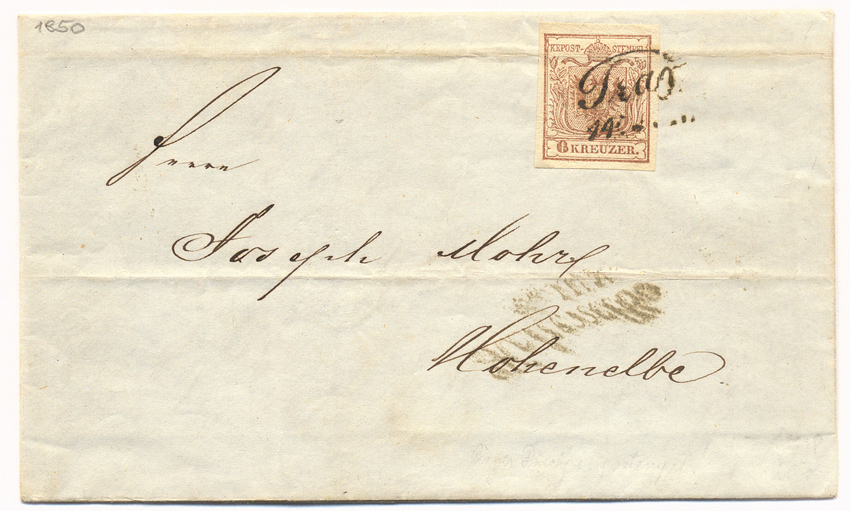 1850
KKPOST-STEMPEL
Prag
6 KREUZER.
Herrn
Joseph Mohr
Hohenelbe.